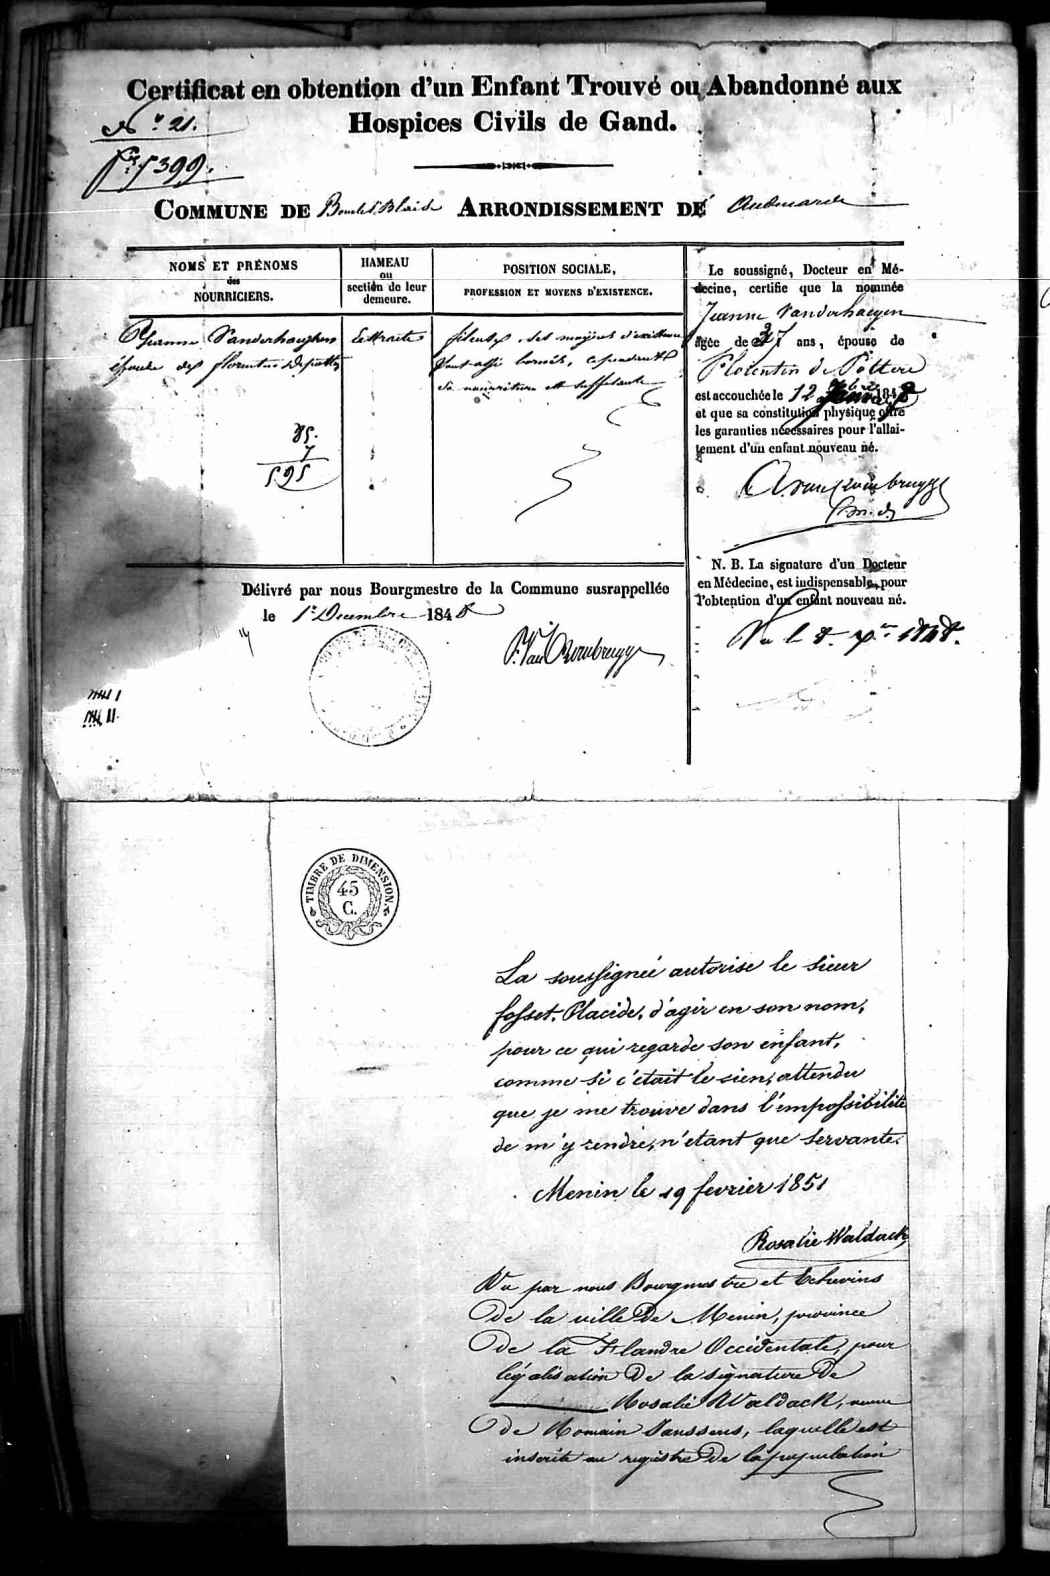 Certificat en obtention d'un Enfant Trouvé ou Abandonné aux
Hospices Civils de Gand.
N° 21.
5399.
COMMUNE DE Boucle St. Blaise ARRONDISSEMENT DE Audenarde
NOMS ET PRÉNOMS
des
NOURRICIERS.
HAMEAU
ou
section de leur
demeure.
POSITION SOCIALE,
PROFESSION ET MOYENS D'EXISTENCE.
Jeanne Vanderhaeghen
épouse de florentin Depotter
85.
7
595
fileuse, ses moyens d'existence
sont assez bornés, cependant
sa nourriture est suffisante
Le soussigné, Docteur en Mé-
decine, certifie que la nommée
Jeanne Vanderhaegen
âgée de 37 ans, épouse de
Florentin de Pottere
est accouchée le 12 1848
et que sa constitution physique offre
les garanties nécessaires pour l'allai-
tement d'un enfant nouveau né.
A. van Rombrugge
m. d.
N. B. La signature d'un Docteur
en Médecine, est indispensable, pour
l'obtention d'un enfant nouveau né.
Vu le 8. Xbre 1848.
Délivré par nous Bourgmestre de la Commune susrappellée
le 1r Decembre 1848
Van Rombrugge
TIMBRE DE DIMENSION.
45
C.
La soussignée autorise le sieur
fosset. Placide, d'agir en son nom,
pour ce qui regarde son enfant,
comme si c'était le sien, attendu
que je me trouve dans l'impossibilité
de m'y rendre, n'étant que servante.
Menin le 19 fevrier 1851
Rosalie Waldack
Vu par nous Bourgmestre et Echevins
de la ville de Menin, province
de la Flandre Occidentale, pour
légalisation de la signature de
Rosalie Waldack, veuve
de Romain Janssens, laquelle est
inscrite au registre de la population